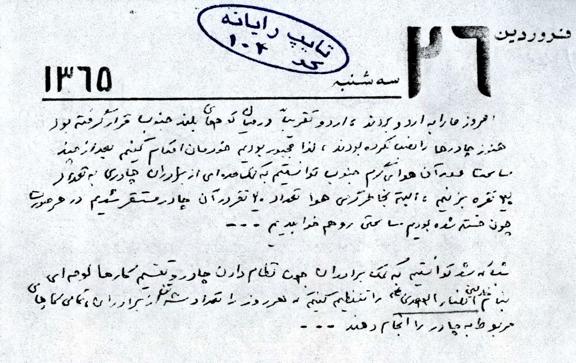 فروردین
۲۶
سه شنبه
۱۳۶۵
تایپ رایانه
کد ۱۰۴
امروز ما را به اردو بردند ، اردو تقریباً در میان کوههای بلند جنوب قرار گرفته بود
هنوز چادرها را نصب نکرده بودند ، لذا مجبور بودیم خودمان اقدام کنیم بعد از چند
ساعتی در آن هوای گرم جنوب توانستیم به کمک عده‌ای از برادران چادری به تعداد
۲۰ نفره بزنیم ، البته بخاطر گرمی هوا تعداد ۲۰ نفر در آن چادر مستقر شدیم در هر صورت
چون خسته شده بودیم ساعتی رو هم خوابیدیم ---
شبانه شد توانستیم به کمک برادران جهت نظام دادن چادر و تقسیم کارها لوحه ای
بنام انصار المهدی را تنظیم کنیم که هر روز را تعداد سه نفر از برادران ، تمامی کارهای
مربوط به چادر را انجام دهند ---